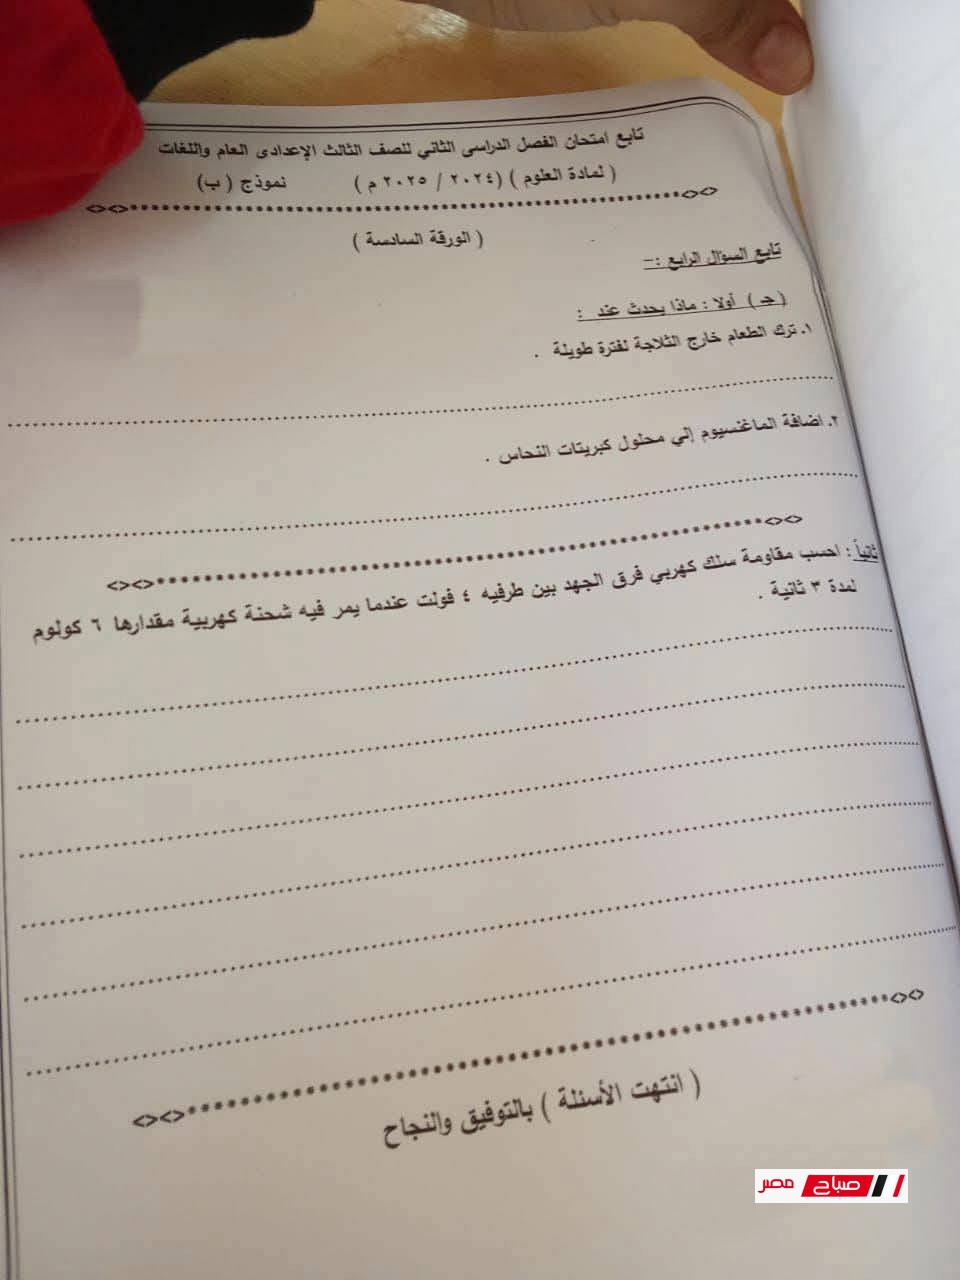 تابع امتحان الفصل الدراسى الثاني للصف الثالث الإعدادى العام واللغات
( لمادة العلوم ) (٢٠٢٤ / ٢٠٢٥ م ) نموذج ( ب)
( الورقة السادسة )
تابع السؤال الرابع :-
( جـ ) أولا : ماذا يحدث عند :
١. ترك الطعام خارج الثلاجة لفترة طويلة .
٢. اضافة الماغنسيوم إلي محلول كبريتات النحاس .
ثانياً : احسب مقاومة سلك كهربي فرق الجهد بين طرفيه ٤ فولت عندما يمر فيه شحنة كهربية مقدارها ٦ كولوم
لمدة ٣ ثانية .
( انتهت الأسئلة ) بالتوفيق والنجاح
صباح مصر